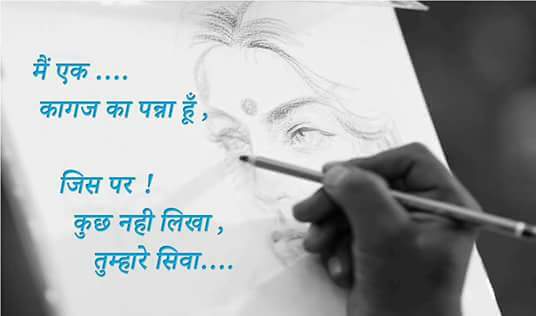 मैं एक ....
कागज का पन्ना हूँ ,
जिस पर !
कुछ नही लिखा ,
तुम्हारे सिवा....